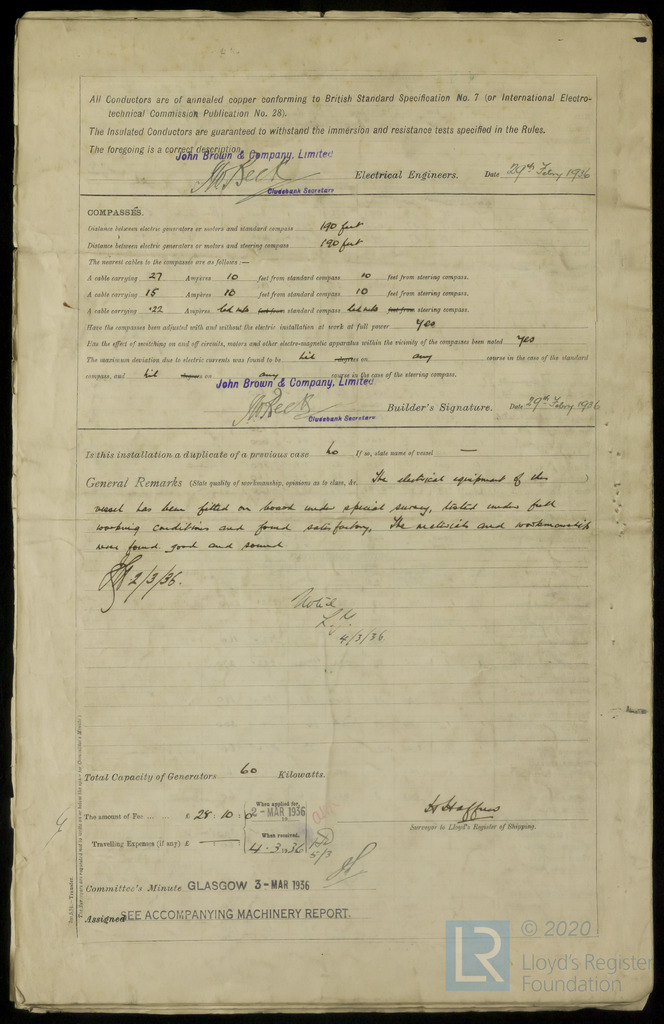 All Conductors are of annealed copper conforming to British Standard Specification No. 7 (or International Electro-
technical Commission Publication No. 28).
The Insulated Conductors are guaranteed to withstand the immersion and resistance tests specified in the Rules.
The foregoing is a correct description.
John Brown & Company, Limited
Electrical Engineers. Date 29th Febry 1936
Clydebank Secretary
COMPASSES.
Distance between electric generators or motors and standard compass 190 feet
Distance between electric generators or motors and steering compass 190 feet
The nearest cables to the compasses are as follows:—
A cable carrying 27 Ampères 10 feet from standard compass 10 feet from steering compass.
A cable carrying 15 Ampères 10 feet from standard compass 10 feet from steering compass.
A cable carrying .22 Ampères led into feet from standard compass led into feet from steering compass.
Have the compasses been adjusted with and without the electric installation at work at full power Yes
Has the effect of switching on and off circuits, motors and other electro-magnetic apparatus within the vicinity of the compasses been noted Yes
The maximum deviation due to electric currents was found to be Nil degrees on any course in the case of the standard
compass, and Nil degrees on any course in the case of the steering compass.
John Brown & Company, Limited.
Builder's Signature. Date 29th Febry 1936
Clydebank Secretary
Is this installation a duplicate of a previous case No If so, state name of vessel —
General Remarks (State quality of workmanship, opinions as to class, &c. The electrical equipment of this
vessel has been fitted on board under special survey, tested under full
working conditions and found satisfactory. The materials and workmanship
were found good and sound.
2/3/36.
Noted
4/3/36
Total Capacity of Generators 60 Kilowatts.
The amount of Fee ... ... £ 28 : 10 : 0
When applied for,
2 - MAR 1936
Travelling Expenses (if any) £ —
When received,
4 . 3 . 1936
5/3
Surveyor to Lloyd's Register of Shipping.
Committee's Minute GLASGOW 3 - MAR 1936
Assigned SEE ACCOMPANYING MACHINERY REPORT.
LR © 2020
Lloyd's Register
Foundation